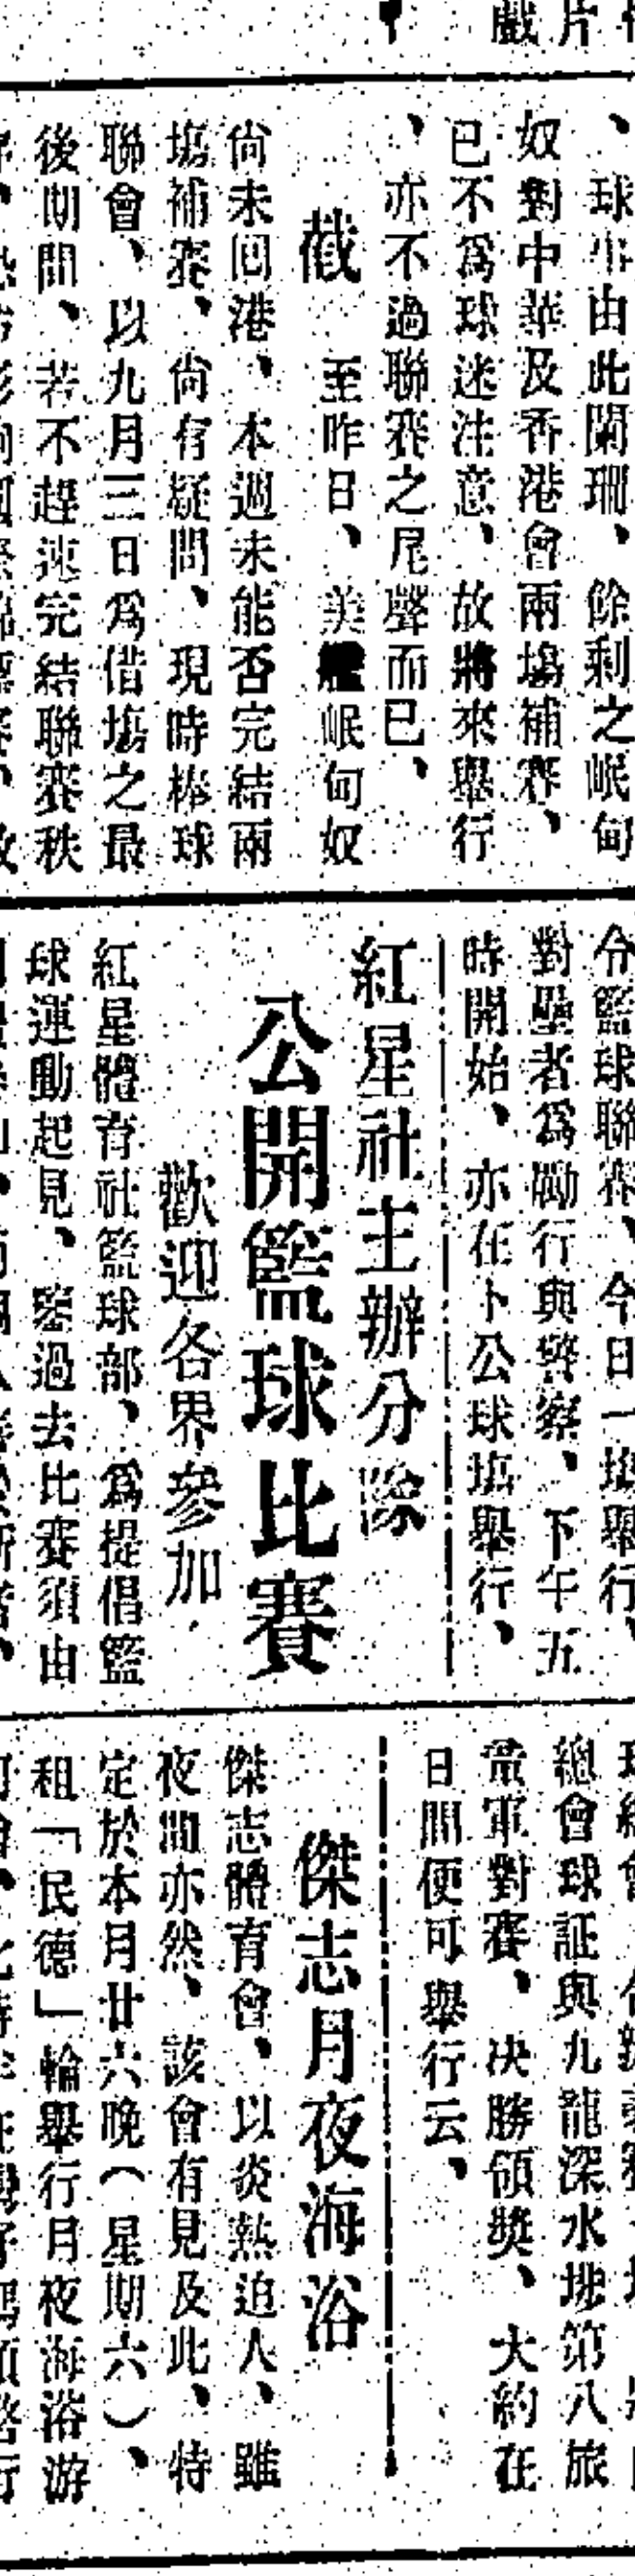 戲片
、球事由此闌珊、餘剩之岷甸
奴對中華及香港會兩塲補賽、
已不爲球迷注意、故將來舉行
、亦不過聯賽之尾聲而已、
截至昨日、美艦岷甸奴
尙未囘港、本週末能否完結兩
塲補賽、尙有疑問、現時棒球
聯會、以九月三日爲借塲之最
後期間、若不趕速完結聯賽秩
令籃球聯賽、今日一塲舉行、
對壘者爲勵行與警察、下午五
時開始、亦在卜公球塲舉行、
紅星社主辦分隊
公開籃球比賽
歡迎各界參加
紅星體育社籃球部、爲提倡籃
球運動起見、鑒過去比賽須由
總會球証與九龍深水埗第八旅
當軍對賽、决勝領獎、大約在
日間便可舉行云、
傑志月夜海浴
傑志體育會、以炎熱迫人、雖
夜間亦然、該會有見及此、特
定於本月廿六晚(星期六)、
租「民德」輪舉行月夜海浴游